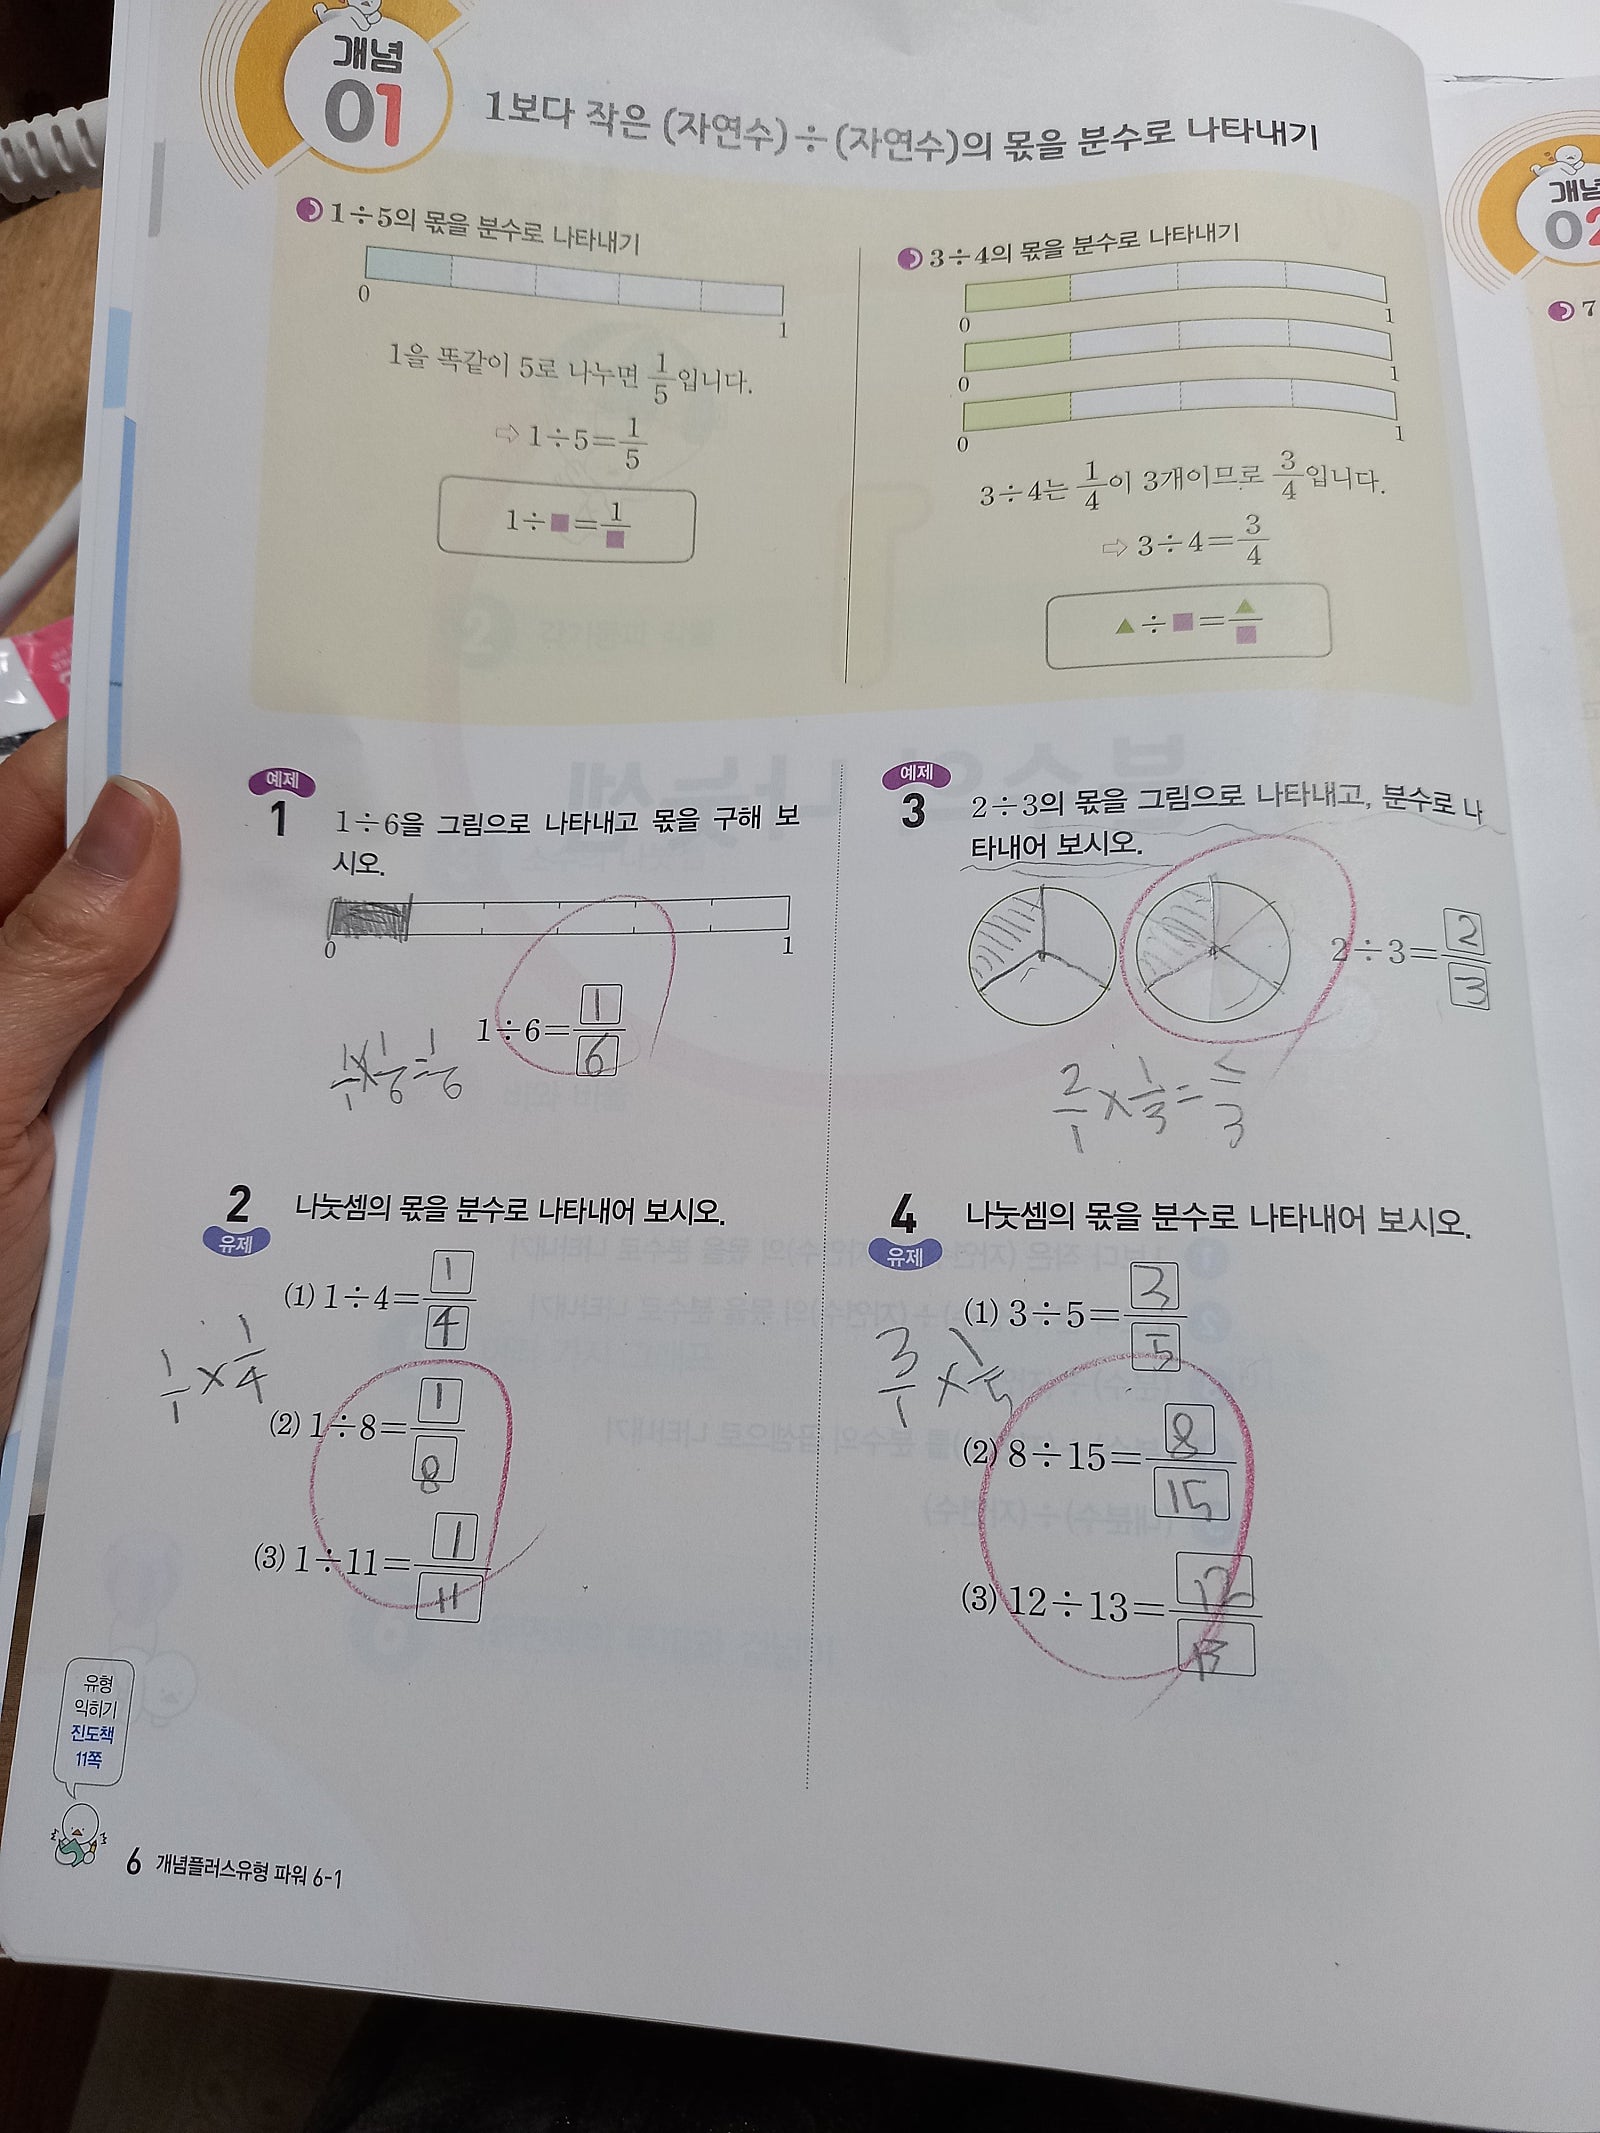 개념
01
1보다 작은 (자연수)÷(자연수)의 몫을 분수로 나타내기
1÷5의 몫을 분수로 나타내기
0 1
1을 똑같이 5로 나누면 1/5입니다.
⇨ 1÷5=1/5
1÷■=1/■
3÷4의 몫을 분수로 나타내기
0 1
0 1
0 1
3÷4는 1/4이 3개이므로 3/4입니다.
⇨ 3÷4=3/4
▲÷■=▲/■
예제
1
1÷6을 그림으로 나타내고 몫을 구해 보
시오.
0 1
1÷6=1/6
1/1×1/6=1/6
2
유제
나눗셈의 몫을 분수로 나타내어 보시오.
(1) 1÷4=1/4
1/1×1/4
(2) 1÷8=1/8
(3) 1÷11=1/11
예제
3
2÷3의 몫을 그림으로 나타내고, 분수로 나
타내어 보시오.
2÷3=2/3
2/1×1/3=2/3
4
유제
나눗셈의 몫을 분수로 나타내어 보시오.
(1) 3÷5=3/5
3/1×1/5
(2) 8÷15=8/15
(3) 12÷13=12/13
유형
익히기
진도책
11쪽
6 개념플러스유형 파워 6-1
개념
02
7